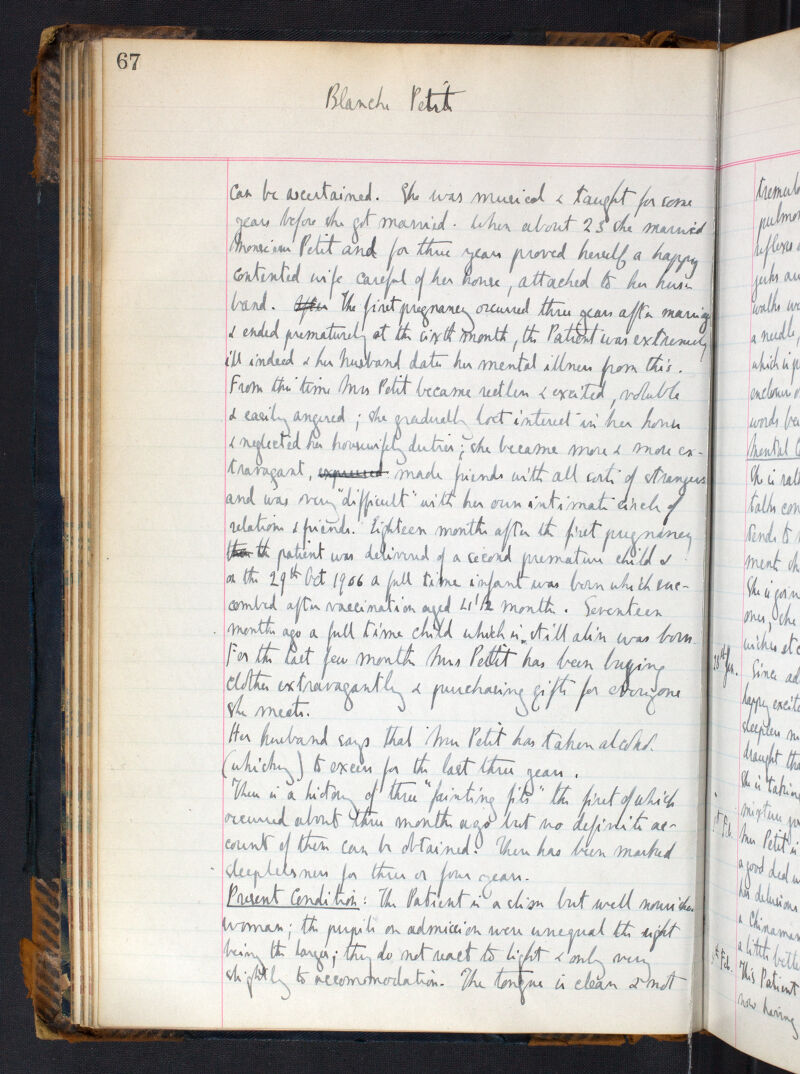 67
Blanche Petit
can be ascertained. She was musical & taught for some
years before she got married. When about 25 she married
Monsieur Petit and for three years proved herself a happy
contented wife careful of her house, attached to her hus-
band. After The first pregnancy occurred three years after marriage
& ended prematurely at the sixth month, the Patient was extremely
ill indeed & her husband dates her mental illness from this.
From this time Mrs Petit became restless & excited, voluble
& easily angered; she gradually lost interest in her home
& neglected her housewifely duties; she became more & more ex-
travagant, expressed made friends with all sorts of strangers
and was very "difficult" with her own intimate circle of
relations & friends. Eighteen months after the first pregnancy
then the patient was delivered of a second premature child &
on the 29th Oct 1906 a full time infant was born which suc-
combed after vaccination aged 4 1/2 months. Seventeen
months ago a full time child which is still alive was born.
For the last few months Mrs Petit has been buying
clothes extravagantly & purchasing gifts for everyone
she meets.
Her husband says that Mrs Petit has taken alcohol
(whiskey) to excess for the last three years.
There is a history of three "fainting fits" the first of which
occurred about three months ago but no definite ac-
count of them can be obtained. There has been marked
sleeplessness for three or four years.
Present Condition: The Patient is a slim but well nourished
woman; the pupils on admission were unequal the right
being the larger; they do not react to light & only very
slightly to accommodation. The tongue is clean & not